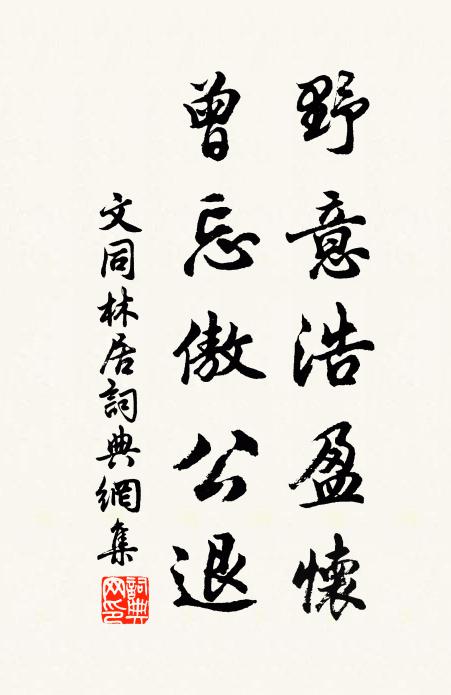 野意浩盈懷
曾忘傲公退
文同林居詞典網集
詞典
网印